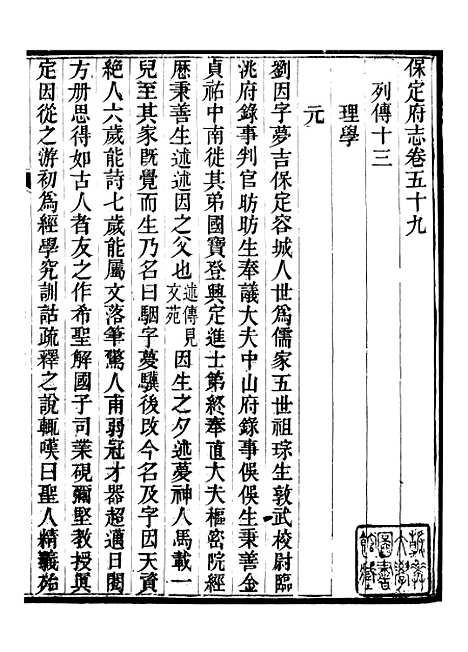 保定府志卷五十九
列傳十三
理學
元
劉因字夢吉保定容城人世爲儒家五世祖琮生敦武校尉臨
洮府錄事判官昉昉生奉議大夫中山府錄事俁俁生秉善金
貞祐中南徙其弟國寶登興定進士第終奉直大夫樞密院經
歷秉善生述述因之父也述傳見文苑因生之夕述夢神人馬載一
兒至其家旣覺而生乃名曰駰字夢驥後改今名及字因天資
絕人六歲能詩七歲能屬文落筆驚人甫弱冠才器超邁日閱
方册思得如古人者友之作希聖解國子司業硯彌堅敎授眞
定因從之游初爲經學究訓詁疏釋之說輒嘆曰聖人精義殆